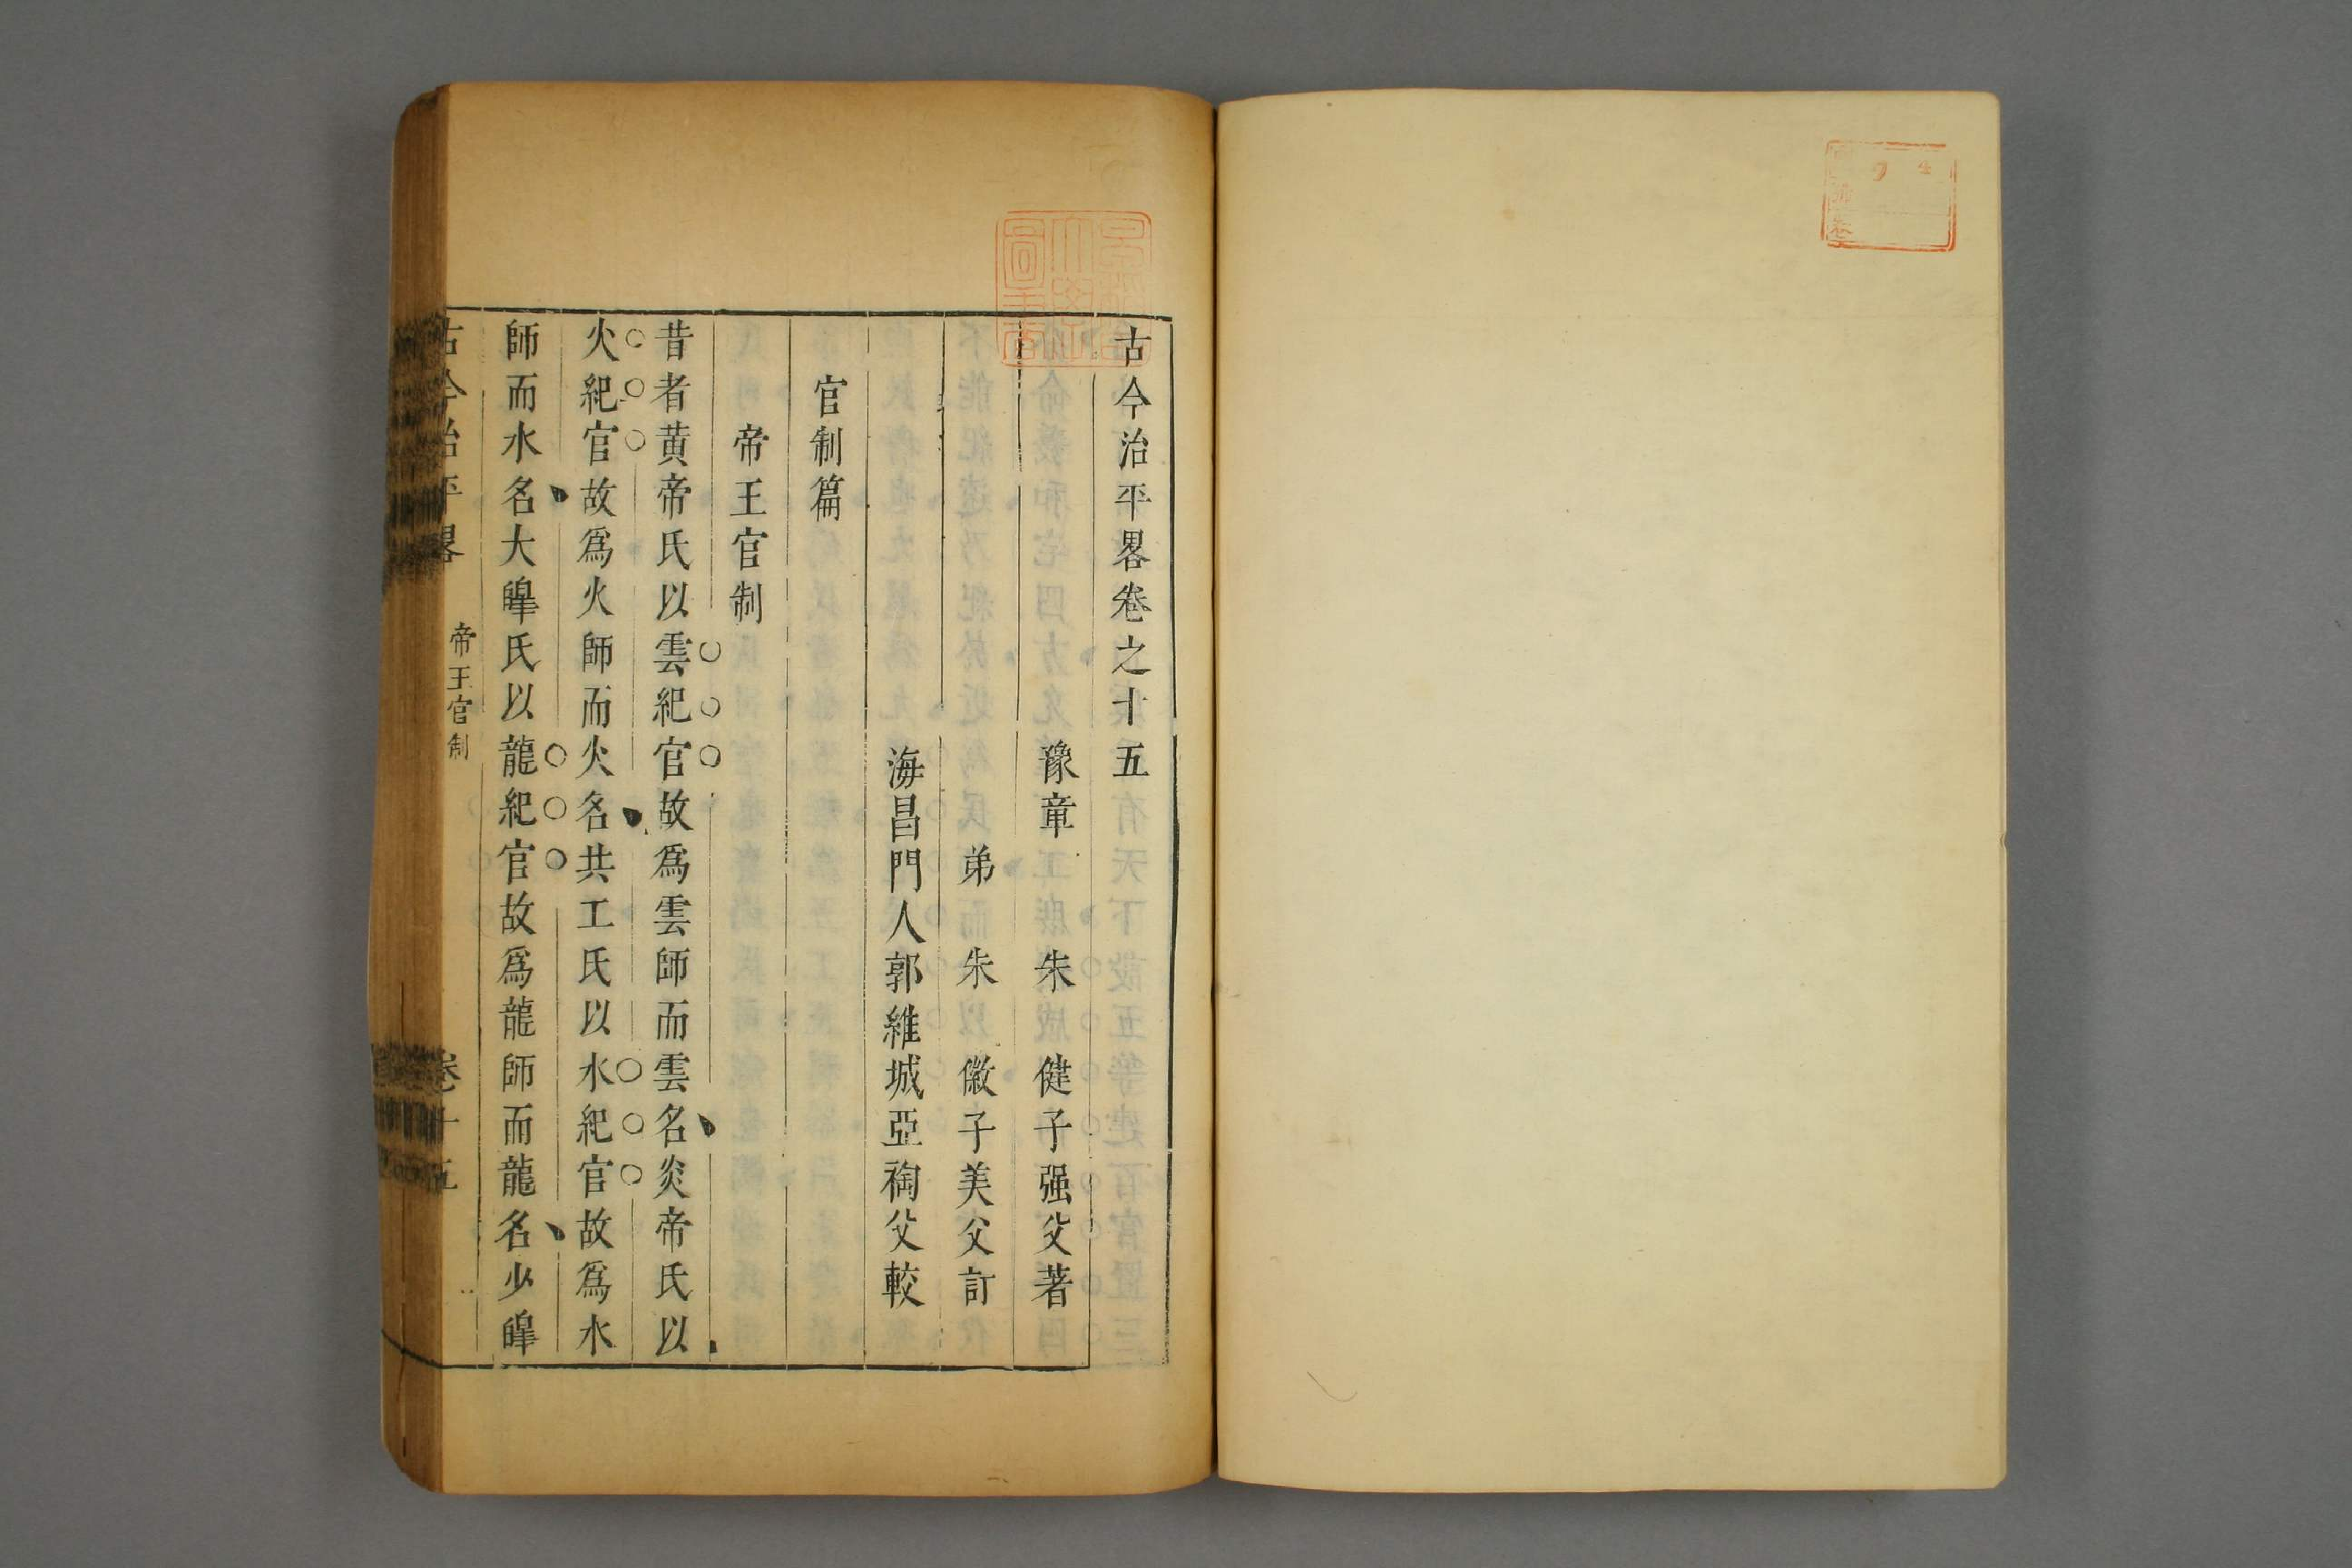 古今治平畧卷之十五
豫章 朱 健子强父著
弟 朱 徽子美父訂
海昌門人郭維城亞裪父較
官制篇
帝王官制
昔者黄帝氏以雲紀官故爲雲師而雲名炎帝氏以
火紀官故爲火師而火名共工氏以水紀官故爲水
師而水名大皥氏以龍紀官故爲龍師而龍名少皥
古今治平畧 帝王官制 卷十五